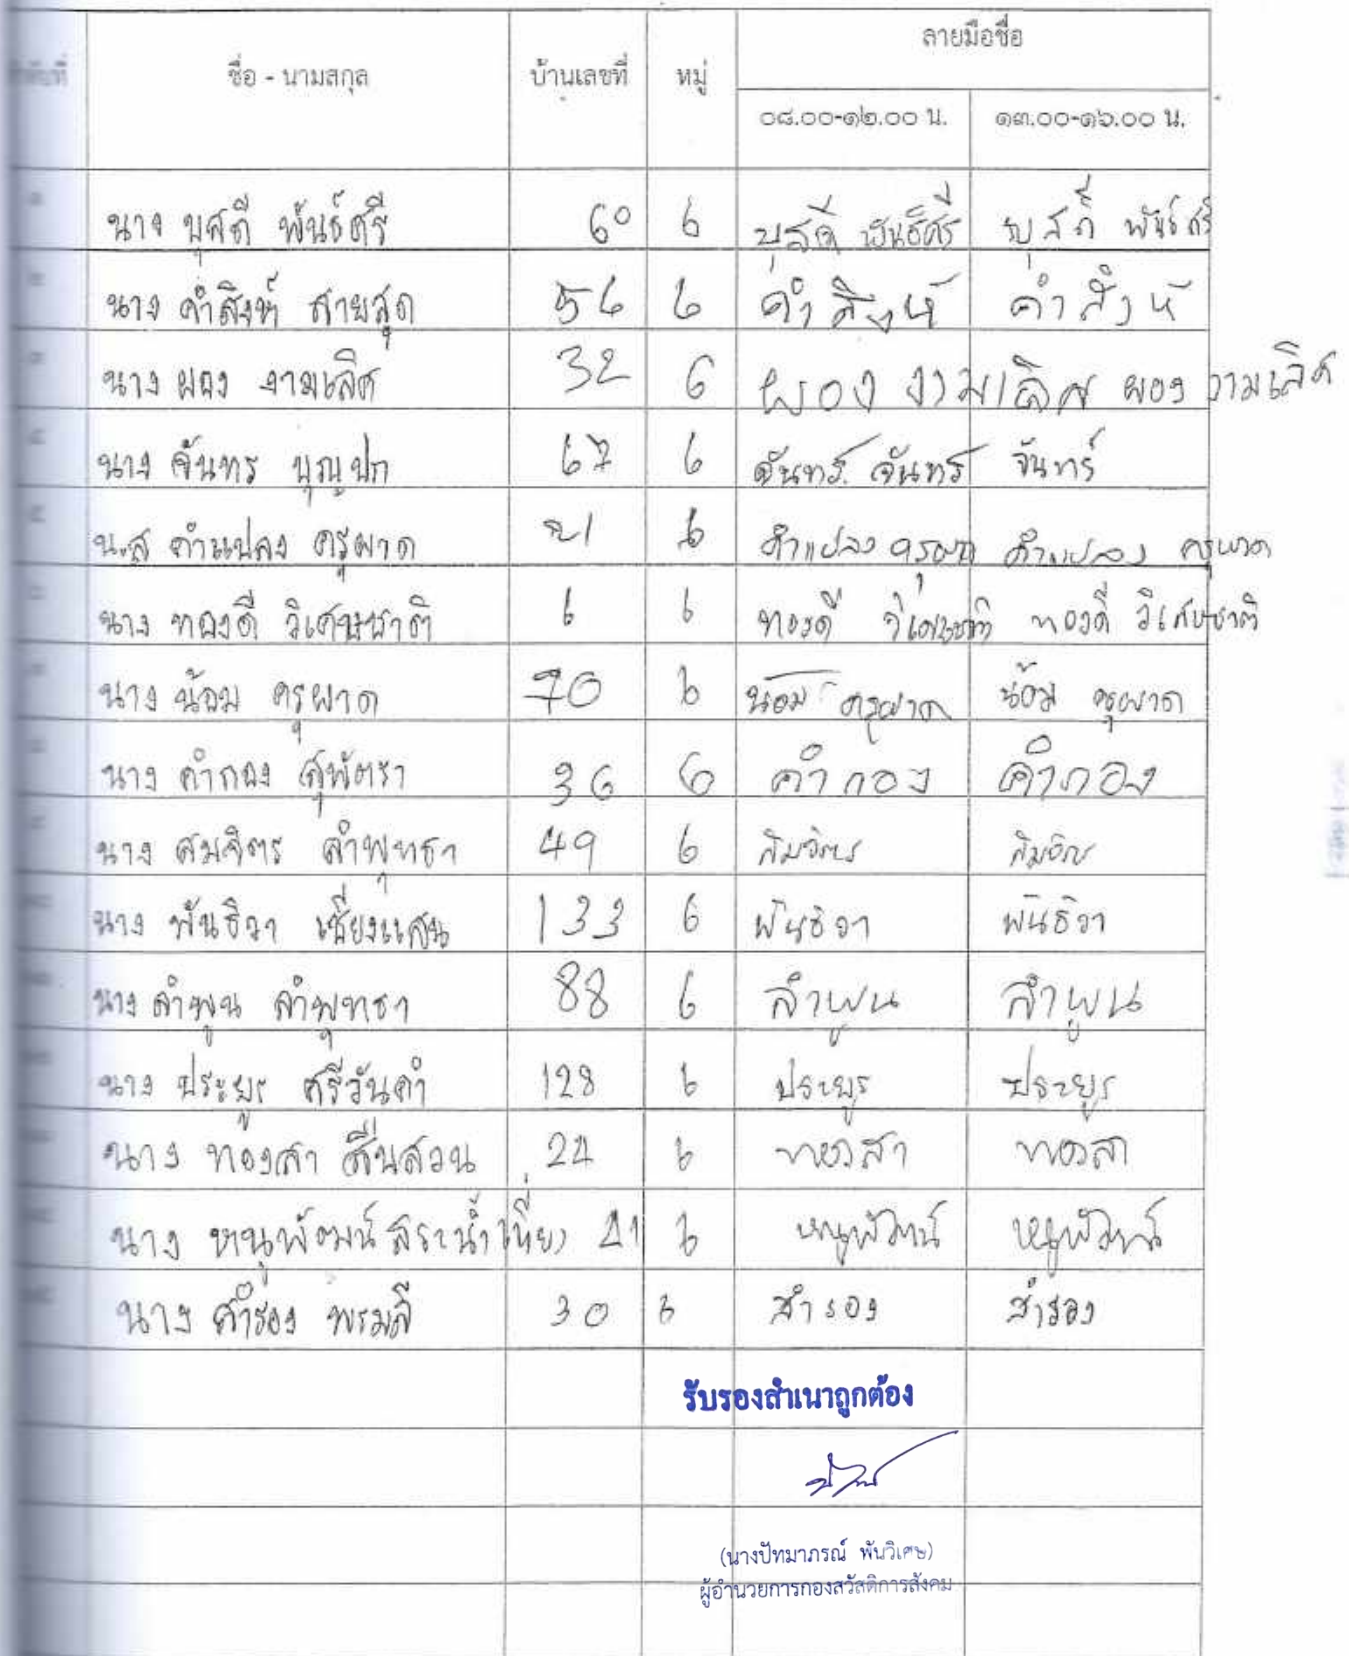 ลายมือชื่อ
ลำดับที่ ชื่อ - นามสกุล บ้านเลขที่ หมู่
๐๘.๐๐-๑๒.๐๐ น. ๑๓.๐๐-๑๖.๐๐ น.
นาง บุศดี พันธ์ศรี 60 6 บุสดี พันธ์ศรี บุสดี พันธ์ศรี
นาง คำสิงห์ สายสุด 56 6 คำสิงห์ คำสิงห์
นาง ผอง งามเลิศ 32 6 ผอง งามเลิศ ผอง งามเลิศ
นาง จันทร บุญปก 67 6 จันทร์ จันทร์ จันทร์
น.ส คำแปลง ครุผาด 21 6 คำแปลง ครุผาด คำแปลง ครุผาด
นาง ทองดี วิเศษชาติ 6 6 ทองดี วิเศษชาติ ทองดี วิเศษชาติ
นาง น้อม ครุผาด 70 6 น้อม ครุผาด น้อม ครุผาด
นาง คำกอง สุพัตรา 36 6 คำกอง คำกอง
นาง สมจิตร ลำพุทธา 49 6 สมจิตร สมจิตร
นาง พันธิวา เชียงแสน 133 6 พันธิวา พันธิวา
นาง ลำพูน ลำพุทธา 88 6 ลำพูน ลำพูน
นาง ประยูร ศรีวันคำ 128 6 ประยูร ประยูร
นาง ทองสา ตื่นสวน 24 6 ทองสา ทองสา
นาง หนูพัฒน์ สระน้ำเที่ยง 41 6 หนูพัฒน์ หนูพัฒน์
นาง สำรอง พรมลี 30 6 สำรอง สำรอง
รับรองสำเนาถูกต้อง
(นางปัทมาภรณ์ พันวิเศษ)
ผู้อำนวยการกองสวัสดิการสังคม